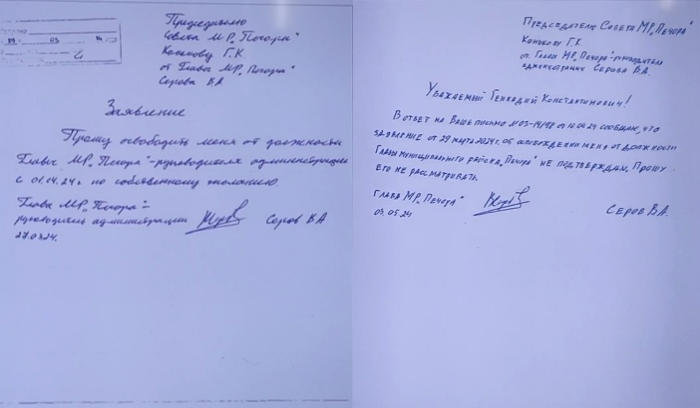 Председателю
Совета МР "Печора"
Конькову Г.К.
от Главы МР "Печора"
Серова В.А
Заявление
Прошу освободить меня от должности
Главы МР "Печора" - руководителя администрации
с 01.04.24г по собственному желанию
Глава МР "Печора" -
руководитель администрации Серов В.А
27.03.24г.
Председателю Совета МР "Печора"
Конькову Г.К.
от Главы МР "Печора" - руководителя
администрации Серова В.А.
Уважаемый Геннадий Константинович!
В ответ на Ваше письмо сообщаю, что
заявление от 29 марта 2024г. об освобождении меня от должности
Главы муниципального района "Печора" не подтверждаю. Прошу
его не рассматривать.
Глава МР "Печора" Серов В.А.
03.05.24